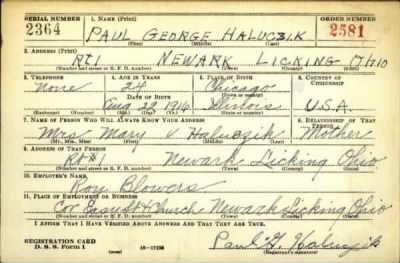 SERIAL NUMBER 1. NAME (Print) ORDER NUMBER
2364 PAUL GEORGE HALUCZIK 2581
(First) (Middle) (Last)
2. ADDRESS (Print)
Rt 1 NEWARK LICKING OHIO
(Number and street or R. F. D. number) (Town) (County) (State)
3. TELEPHONE 4. AGE IN YEARS 5. PLACE OF BIRTH 6. COUNTRY OF CITIZENSHIP
none 24 Chicago
DATE OF BIRTH (Town or county)
Aug 29 1916 Illinois U.S.A.
(Mo.) (Day) (Yr.) (State or country)
7. NAME OF PERSON WHO WILL ALWAYS KNOW YOUR ADDRESS 8. RELATIONSHIP OF THAT PERSON
Mrs Mary Haluczik Mother
9. ADDRESS OF THAT PERSON
Rt #1 Newark Licking Ohio
(Number and street or R. F. D. number) (Town) (County) (State)
10. EMPLOYER'S NAME
Roy Blowers
11. PLACE OF EMPLOYMENT OR BUSINESS
Cor & Church Newark Licking Ohio
(Number and street or R. F. D. number) (Town) (County) (State)
I AFFIRM THAT I HAVE VERIFIED ABOVE ANSWERS AND THAT THEY ARE TRUE.
REGISTRATION CARD
D. S. S. Form 1 16-17105 Paul G. Haluczik